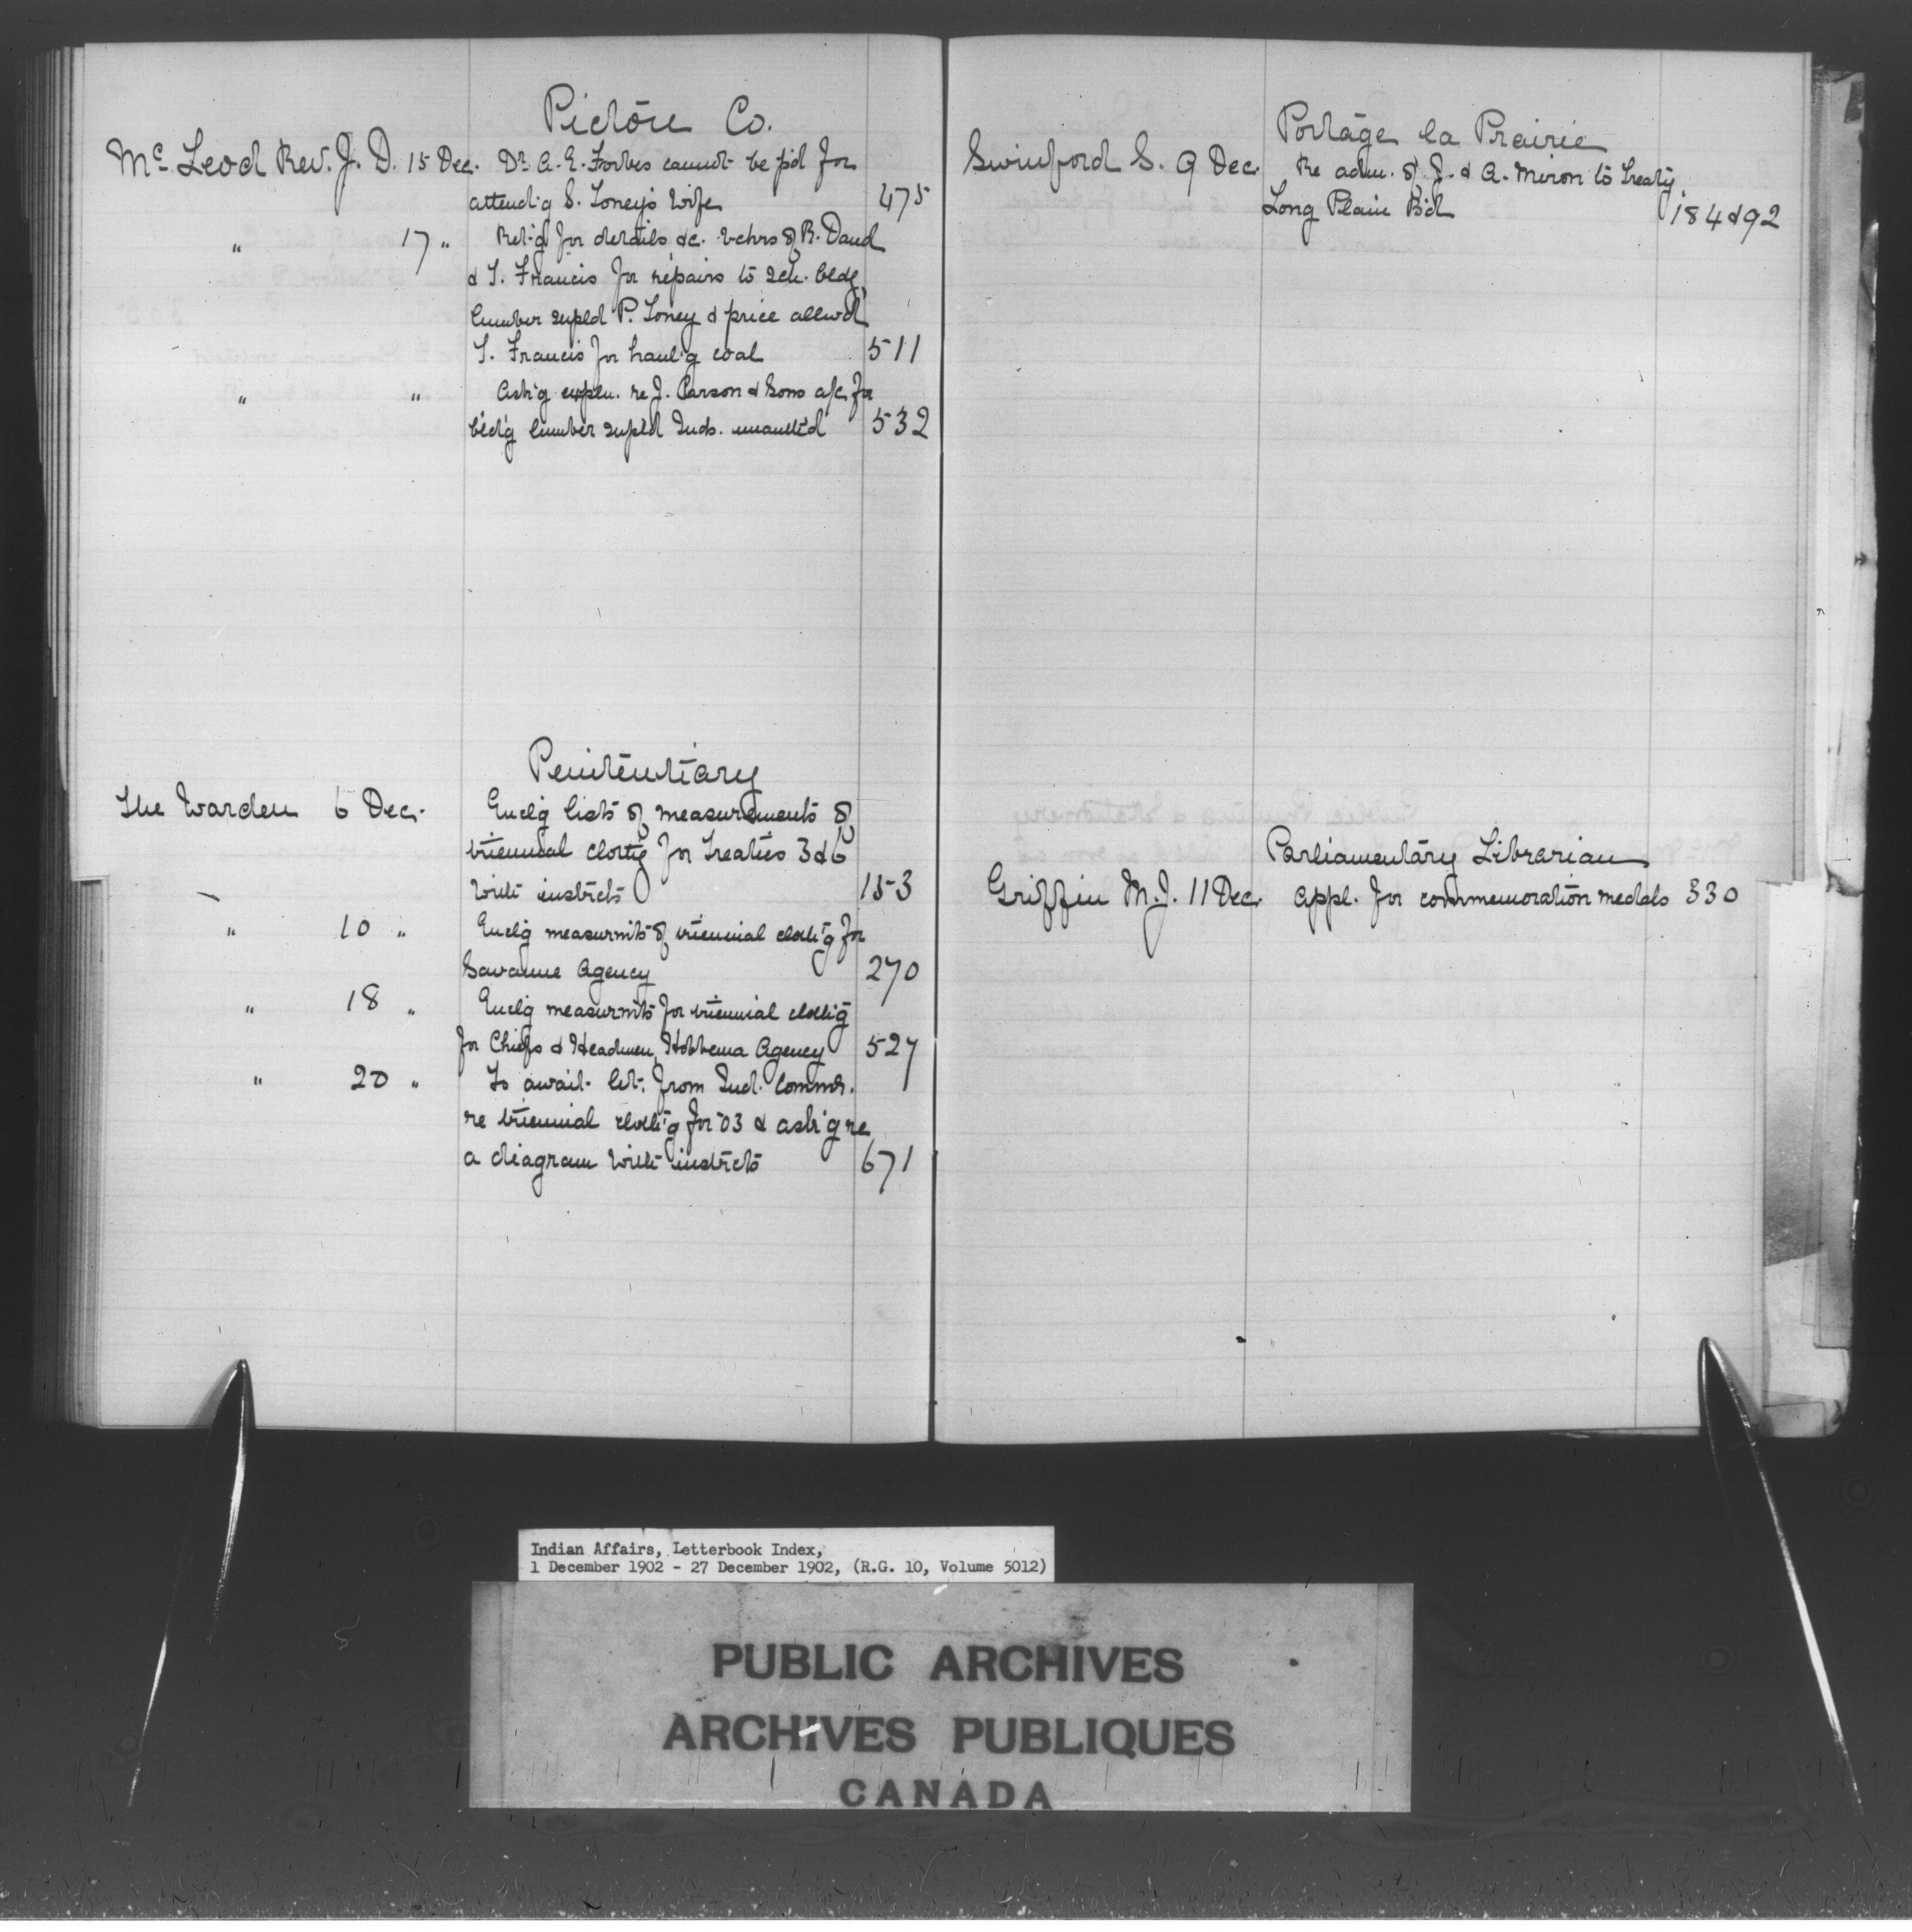 Pictou Co.
McLeod Rev. J. D. 15 Dec. Dr. A. E. Forbes cannot be p'd for
attend'g S. Toney's Wife 475
" 17 " Ret'g for details &c. vchrs of R.
& T. Francis for repairs to sch. bldg,
lumber supld P. Toney & price allw'd
T. Francis for haul'g coal 511
" " Ask'g expln. re J. Carson & Sons a/c for
bld'g lumber supl'd Inds. unauth'd 532
Penitentiary
The Warden 6 Dec. Encl'g lists of measurements of
triennial clothg for Treaties 3 & 6
with instrcts 153
" 10 " Encl'g measurm'ts of triennial cloth'g for
Savanne Agency 270
" 18 " Encl'g measurm'ts for triennial cloth'g
for Chiefs & Headmen, Hobbema Agency 527
" 20 " To await let. from Ind. Commr.
re triennial cloth'g for '03 & ask'g re
a diagram with instrcts 671
Portage la Prairie
Swinford S. 9 Dec. Re adm. of J. & A. Miron to Treaty,
Long Plain B'd 184 & 92
Parliamentary Librarian
Griffin M. J. 11 Dec. Appl. for commemoration medals 330
Indian Affairs, Letterbook Index,
1 December 1902 - 27 December 1902, (R.G. 10, Volume 5012)
PUBLIC ARCHIVES
ARCHIVES PUBLIQUES
CANADA